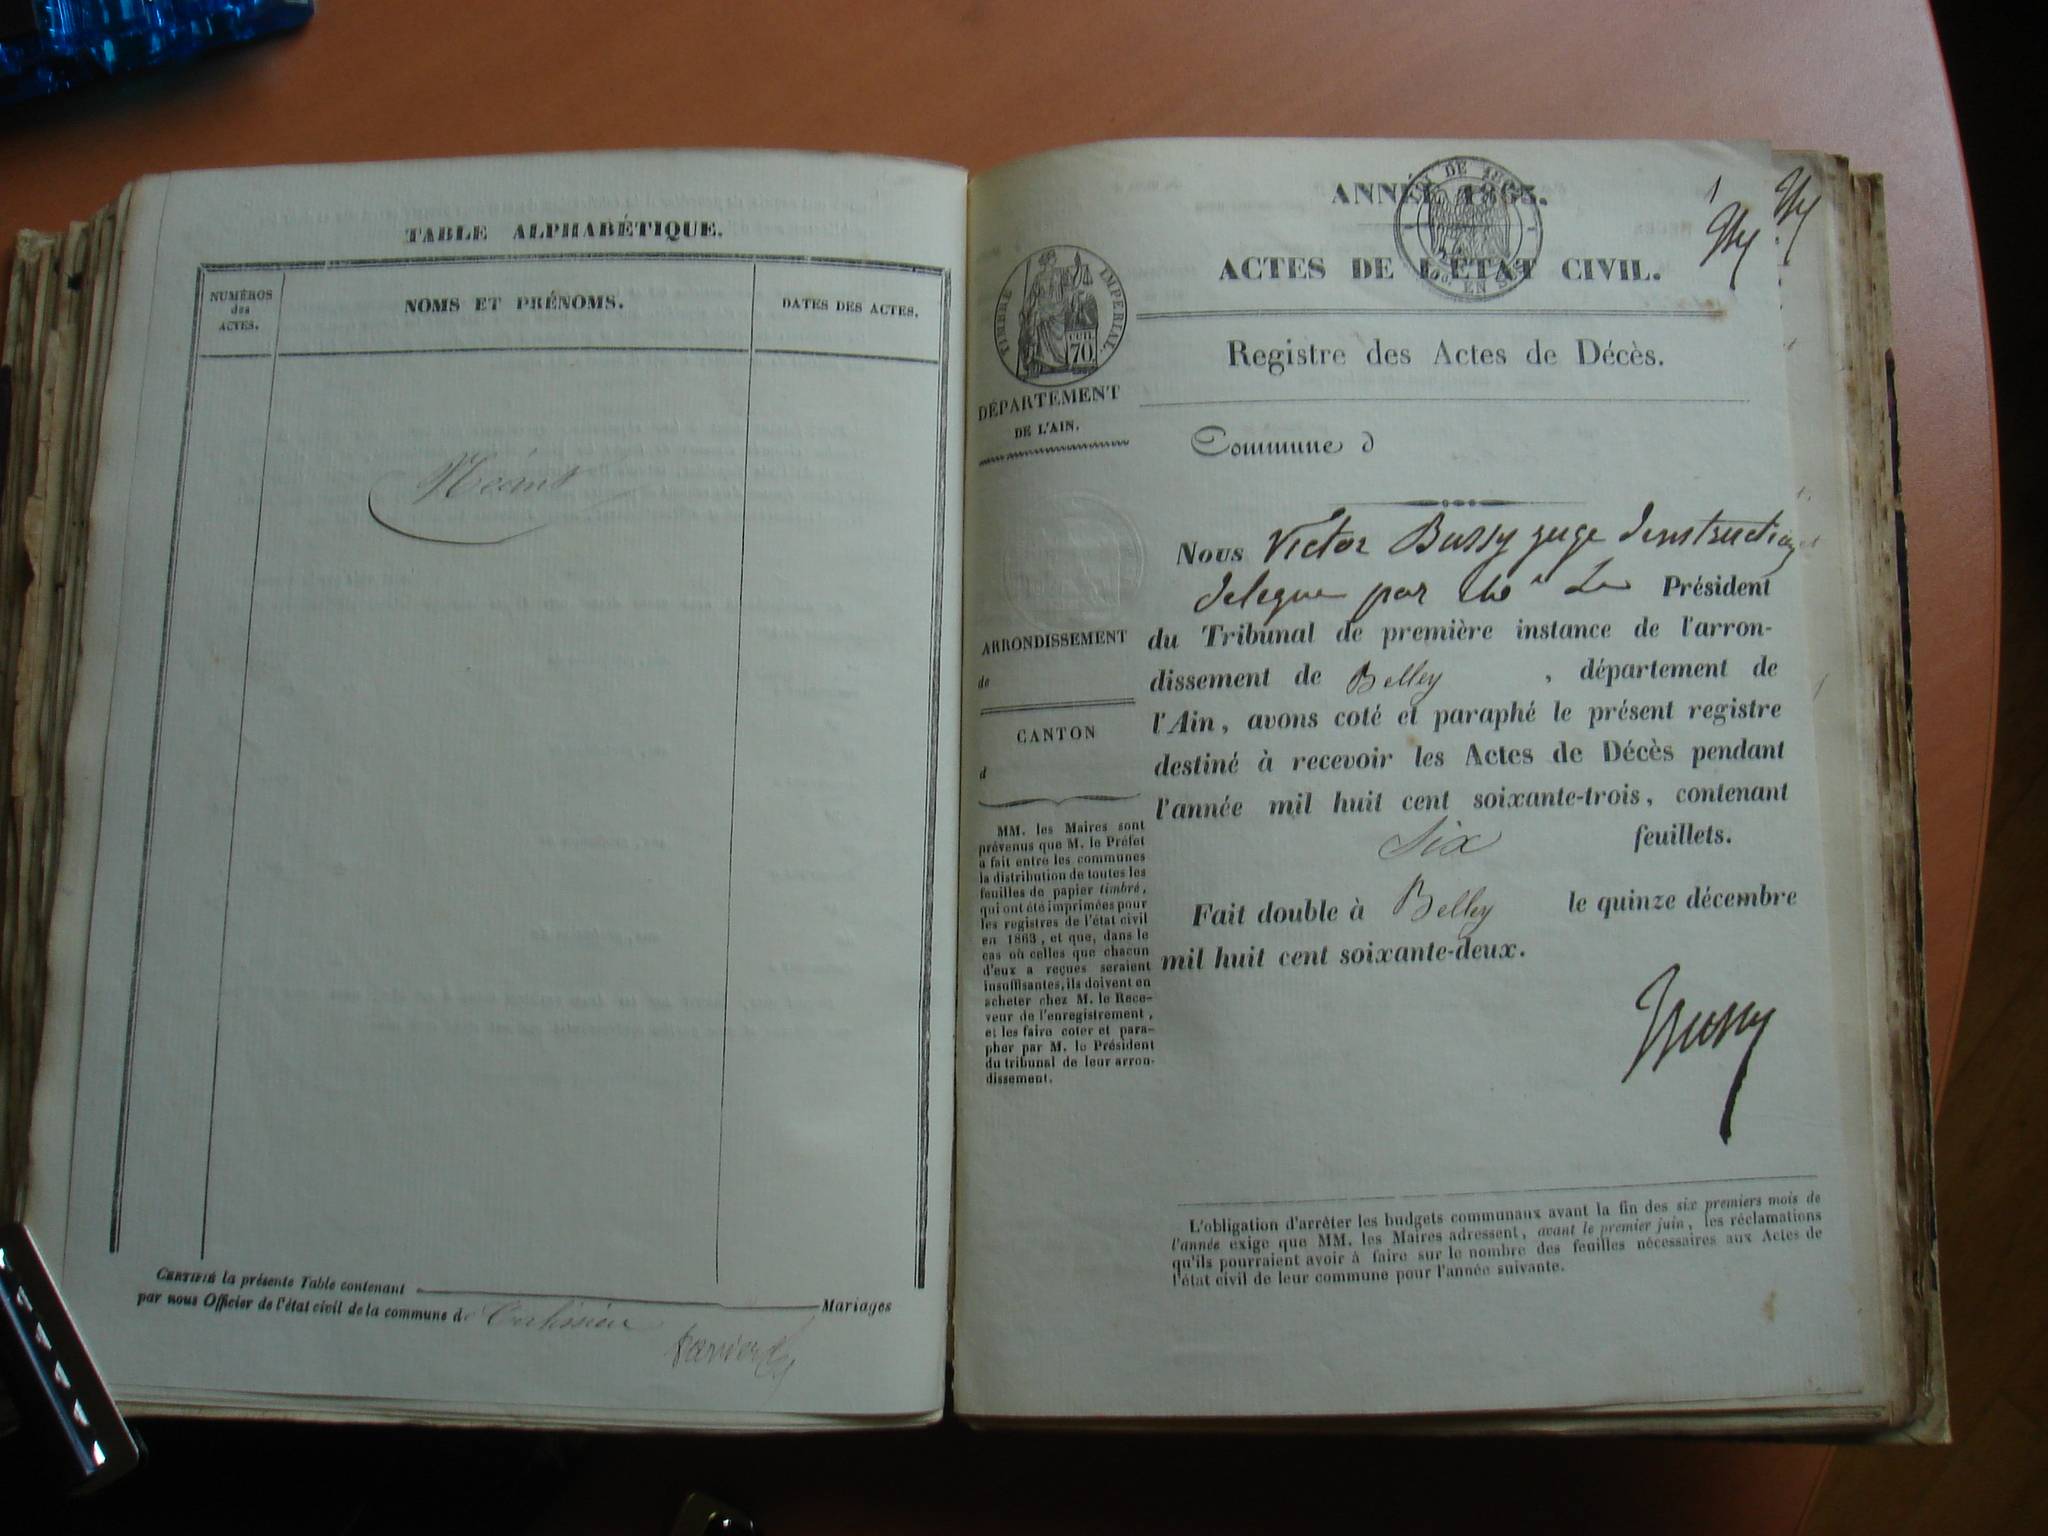 TABLE ALPHABÉTIQUE.
NUMÉROS
des
ACTES.
NOMS ET PRÉNOMS.
DATES DES ACTES.
Néant
CERTIFIÉ la présente Table contenant
Mariages
par nous Officier de l'état civil de la commune de
ANNÉE 1863.
ACTES DE L'ÉTAT CIVIL.
Registre des Actes de Décès.
TIMBRE IMPERIAL
70
DÉPARTEMENT
DE L'AIN.
Commune d
ARRONDISSEMENT
de
CANTON
d
MM. les Maires sont
prévenus que M. le Préfet
a fait entre les communes
la distribution de toutes les
feuilles de papier timbré,
qui ont été imprimées pour
les registres de l'état civil
en 1863, et que, dans le
cas où celles que chacun
d'eux a reçues seraient
insuffisantes, ils doivent en
acheter chez M. le Rece-
veur de l'enregistrement,
et les faire coter et para-
pher par M. le Président
du tribunal de leur arron-
dissement.
Nous Victor Bussy juge d'instruction
delegue par Le Président
du Tribunal de première instance de l'arron-
dissement de Belley, département de
l'Ain, avons coté et paraphé le présent registre
destiné à recevoir les Actes de Décès pendant
l'année mil huit cent soixante-trois, contenant
six feuillets.
Fait double à Belley le quinze décembre
mil huit cent soixante-deux.
Bussy
L'obligation d'arrêter les budgets communaux avant la fin des six premiers mois de
l'année exige que MM. les Maires adressent, avant le premier juin, les réclamations
qu'ils pourraient avoir à faire sur le nombre des feuilles nécessaires aux Actes de
l'état civil de leur commune pour l'année suivante.